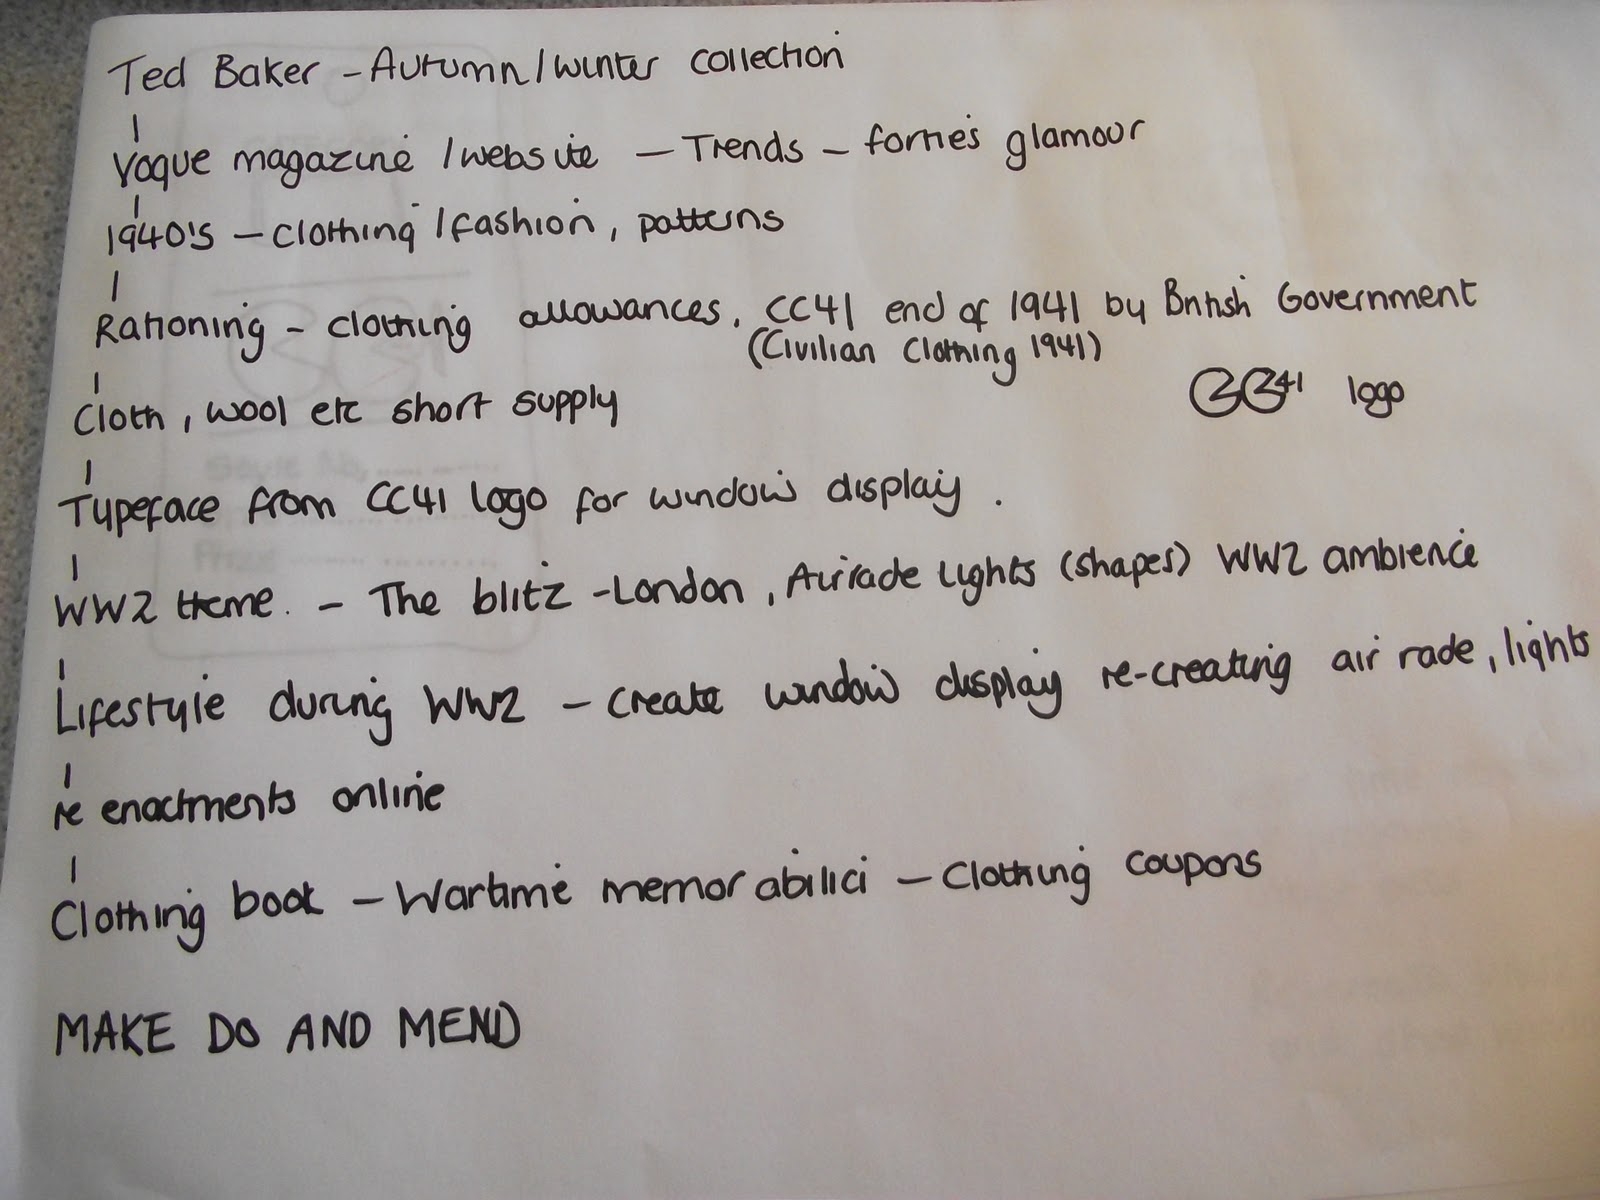 Ted Baker - Autumn/winter collection
Vogue magazine /website - Trends - forties glamour
1940's - clothing /fashion, patterns
Rationing - clothing allowances, CC41 end of 1941 by British Government
(Civilian Clothing 1941)
Cloth, wool etc short supply
CC41 logo
Typeface from CC41 logo for window display.
WW2 theme. - The blitz - London, Airrade lights (shapes) WW2 ambience
Lifestyle during WW2 - create window display re-creating air rade, lights
re enactments online
Clothing book - Wartime memorabilia - Clothing coupons
MAKE DO AND MEND